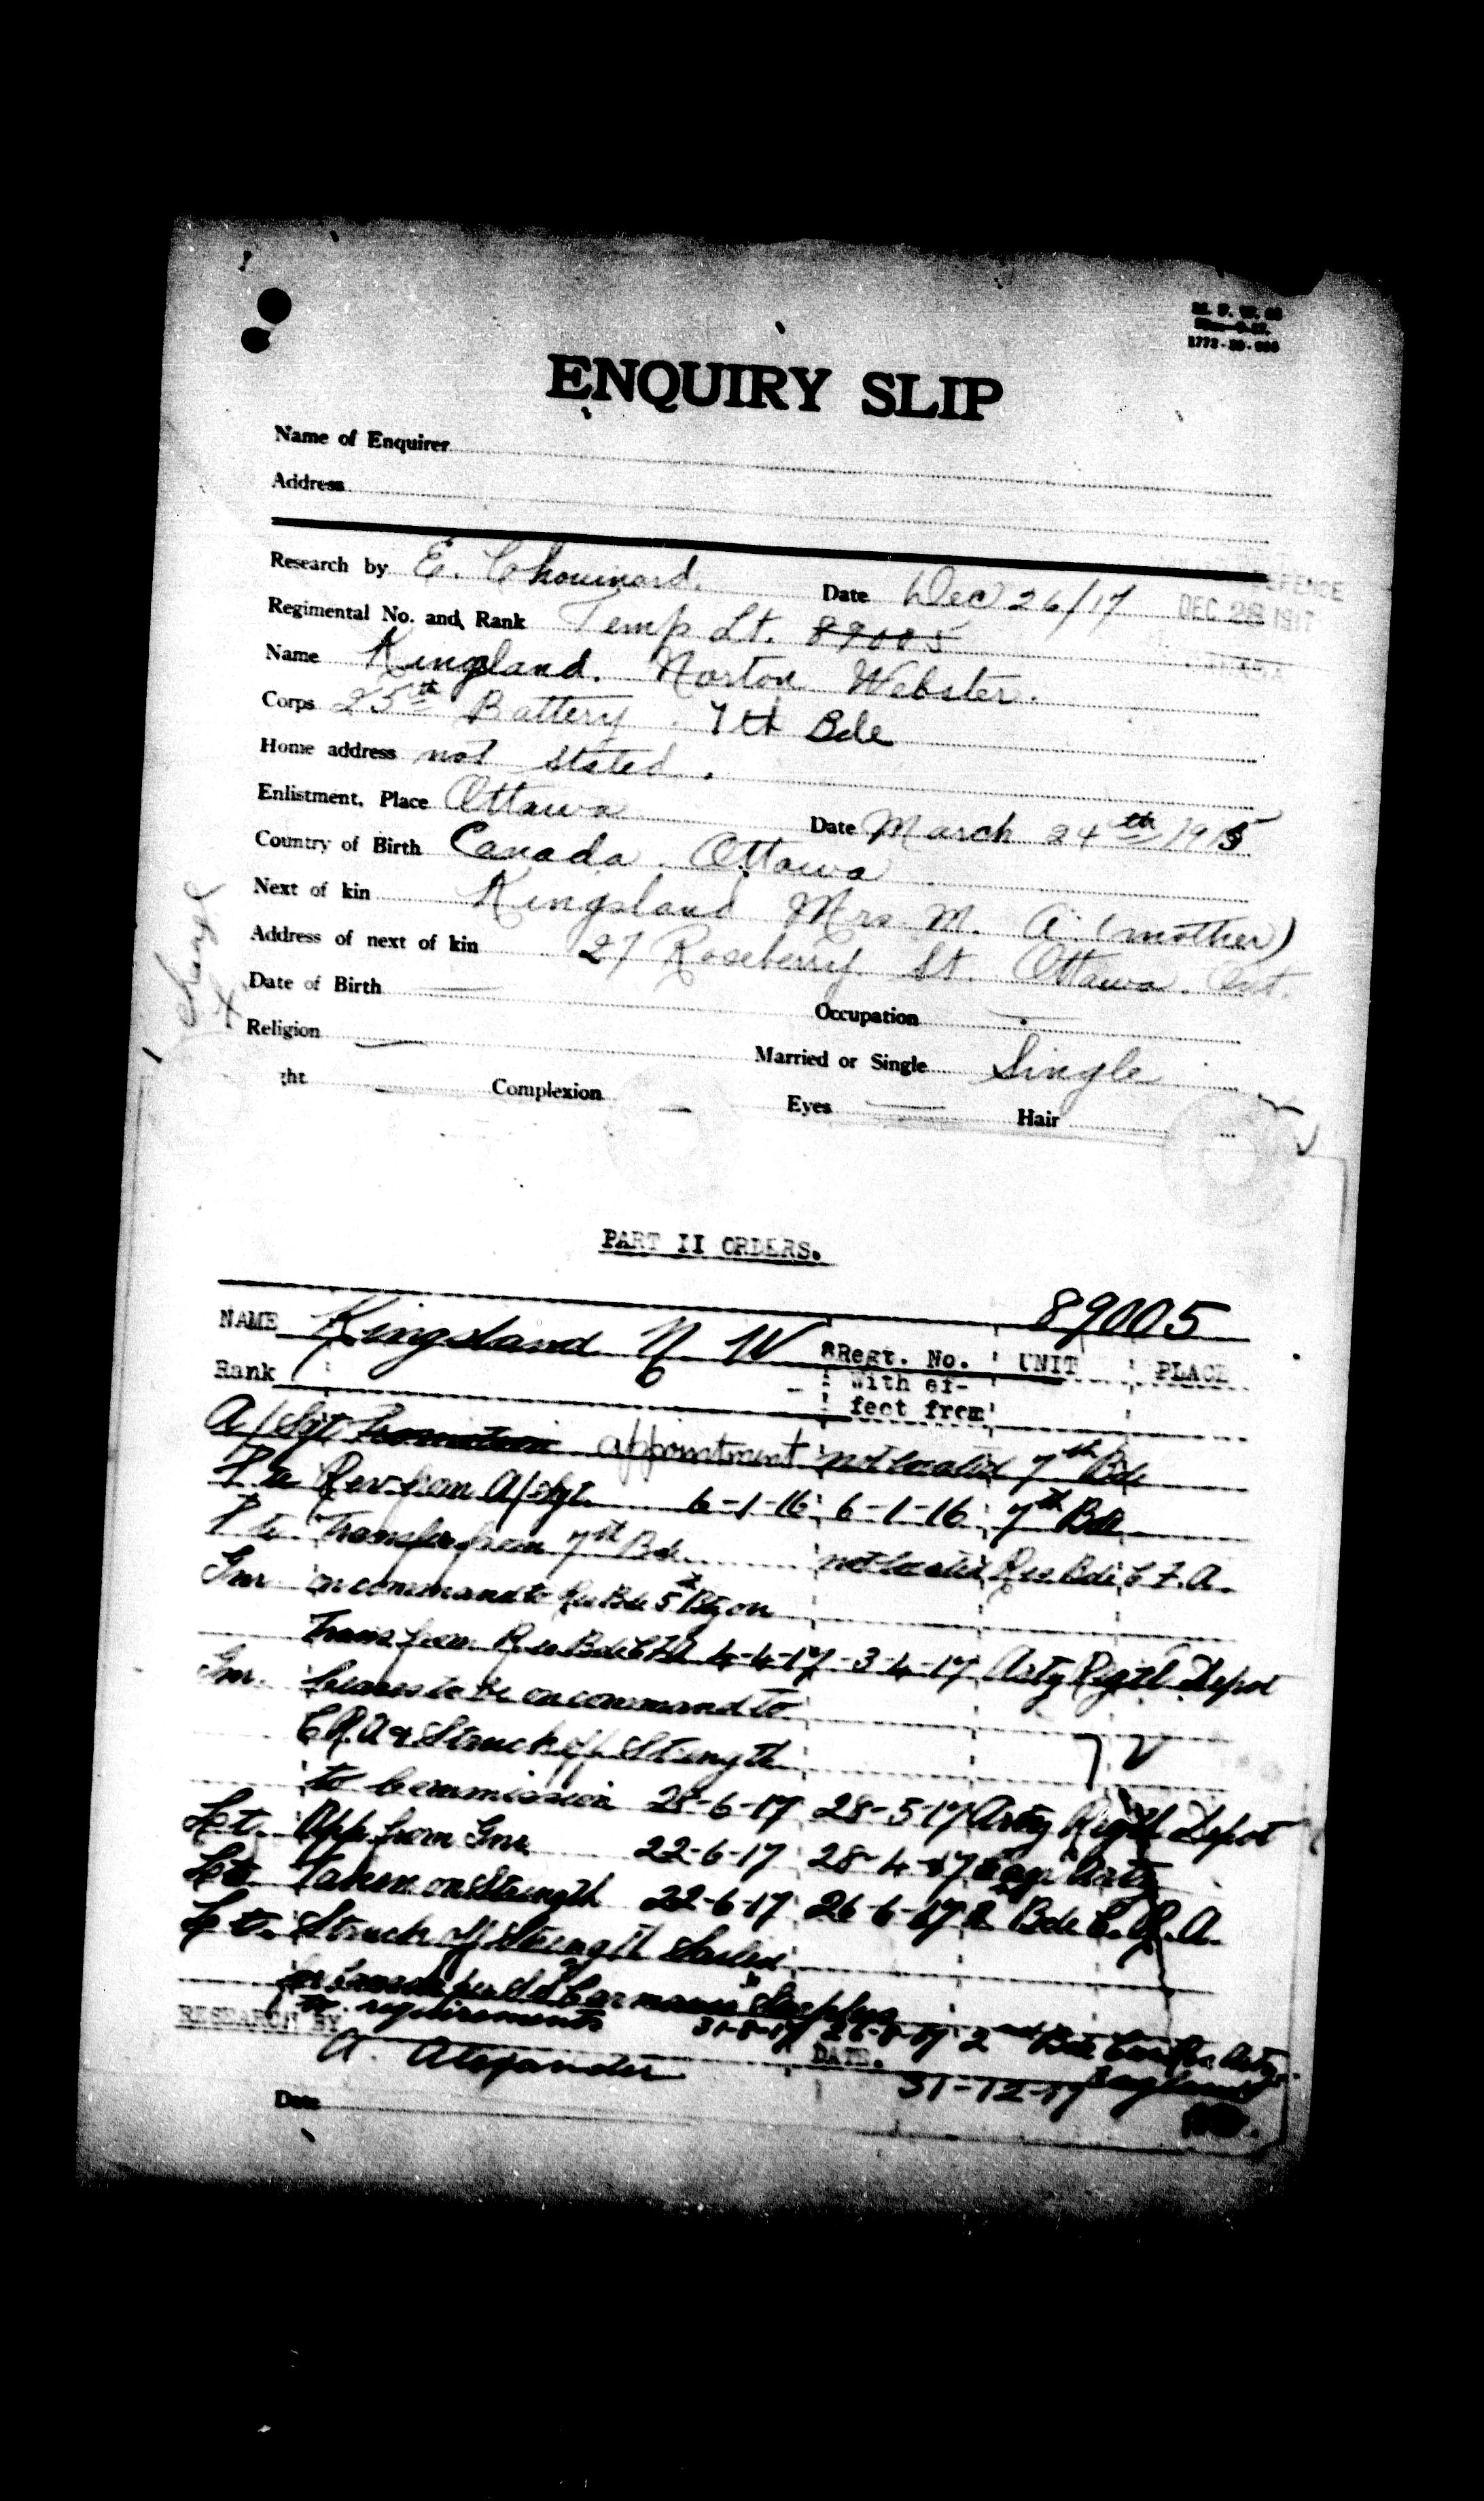 ENQUIRY SLIP
Name of Enquirer
Address
Research by E. Chouinard. Date Dec 26/17
DEFENCE
DEC 28 1917
Regimental No. and Rank Temp Lt. 89005
Name Kingsland. Norton Webster.
Corps 25th Battery. 7th Bde
Home address not stated.
Enlistment, Place Ottawa Date March 24th 1915
Country of Birth Canada. Ottawa
Next of kin Kingsland Mrs M. A. (mother)
Address of next of kin 27 Roseberry St. Ottawa. Ont.
Date of Birth — Occupation —
Religion — Married or Single Single
ght — Complexion — Eyes — Hair
PART II ORDERS.
89005
NAME Kingsland N W Regt. No. UNIT PLACE
Rank With ef-
fect from
A/Sgt Promotion appointment not located 7th Bde
Rev. from A/Sgt. 6-1-16 6-1-16 7th Bde
Pte. Transfer from 7th Bde not located Res Bde C.F.A.
Gnr. on command to Res Bde 5th Bty on
Trans from Res Bde CFA 4-4-17 3-4-17 Arty Regtl Depot
Gnr. Ceases to be on command to
C.R.A & Struck off Strength
to Commission 28-6-17 28-5-17 Arty Regtl Depot
Lt. App. from Gnr. 22-6-17 28-4-17 Arty
Lt. Taken on Strength 22-6-17 26-6-17 2 Bde C.R.A.
Lt. Struck off Strength Sailed
for Canada per SS Carmania Surplus
to requirements 31-8-17 2nd Bde Can Res Arty
England
RESEARCH BY A. Alexander DATE. 31-12-17
Date